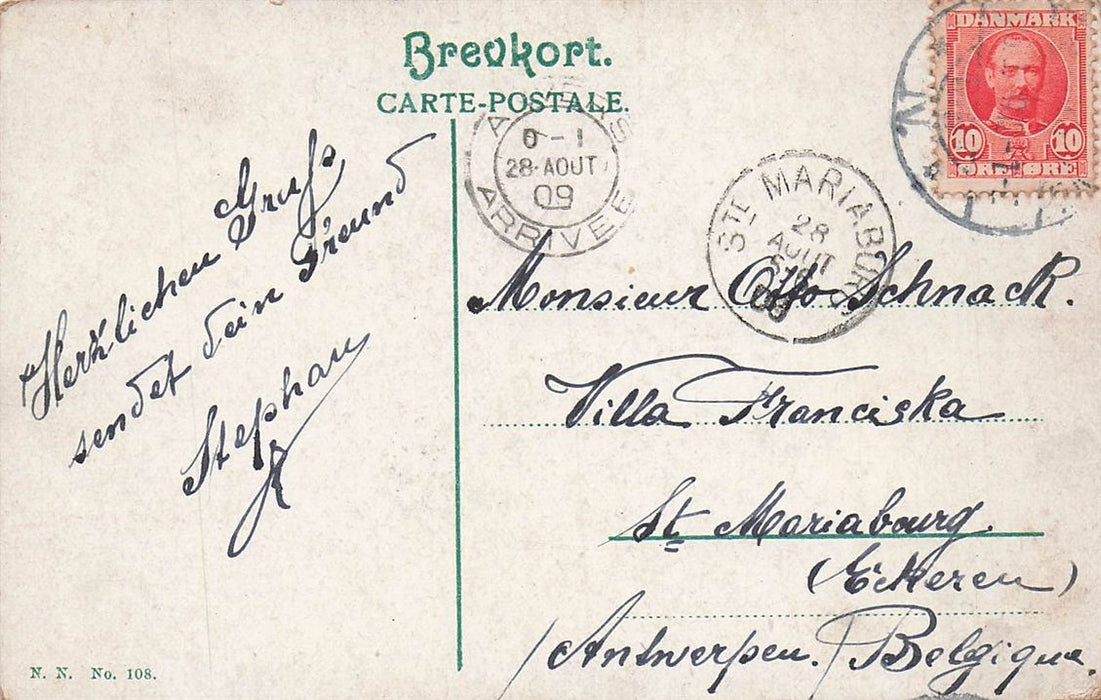 Brevkort.
CARTE-POSTALE.
DANMARK
10 10
ØRE ØRE
ANVERS
6-1
28·AOUT
09
ARRIVEE
STE MARIABURG
28
AOUT
Herzlichen Gruss
sendet Dein Freund
Stephan
Monsieur Otto Schnack.
Villa Franciska
St Mariabourg.
(Eckeren)
/Antwerpen./ Belgique.
N. N. No. 108.